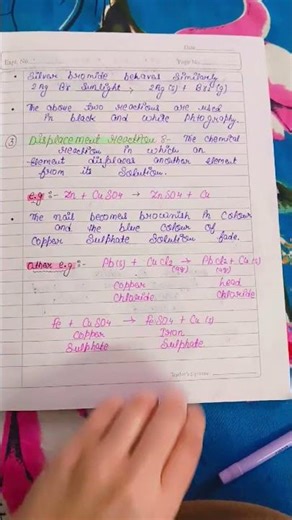 Date
Expt. No.
Page No.
• Silver bromide behaves similarly
2Ag Br Sunlight, 2Ag(s) + Br2(g)
• The above two reactions are used
in black and white photography.
③ Displacement reaction :- The chemical
reaction in which an
element displaces another element
from its solution.
e.g :- Zn + CuSO4 → ZnSO4 + Cu
• The nail becomes brownish in colour
and the blue colour of
Copper Sulphate Solution fade.
Other e.g :- Pb(s) + CuCl2 (aq) → PbCl2 (aq) + Cu(s)
copper lead
chloride chloride
Fe + CuSO4 → FeSO4 + Cu(s)
Copper Iron
Sulphate Sulphate